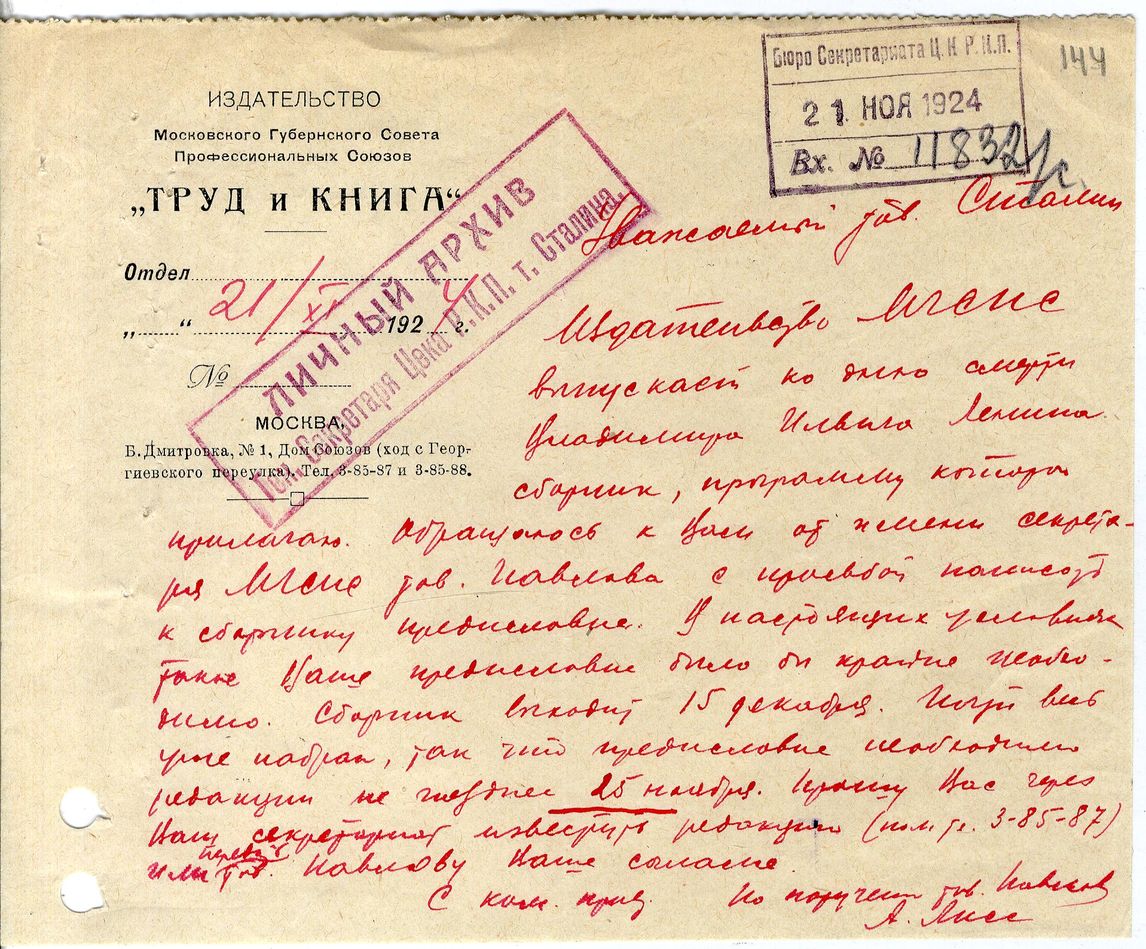 ИЗДАТЕЛЬСТВО
Московского Губернского Совета
Профессиональных Союзов
„ТРУД и КНИГА“
Отдел
„ “ 21/XI 1924 г.
№
МОСКВА,
Б. Дмитровка, № 1, Дом Союзов (ход с Геор-
гиевского переулка). Тел. 3-85-87 и 3-85-88.
ЛИЧНЫЙ АРХИВ
Ген. Секретаря Цека Р.К.П. т. Сталина.
Бюро Секретариата Ц.К Р.К.П.
21 НОЯ 1924
Вх. № 11832/с.
144
Уважаемый тов. Сталин
Издательство МГСПС
выпускает ко дню смерти
Владимира Ильича Ленина
сборник, программу которого
прилагаю. Обращаюсь к Вам от имени секрета-
ря МГСПС тов. Павлова с просьбой написать
к сборнику предисловие. В настоящих условиях
такое Ваше предисловие было бы крайне необхо-
димо. Сборник выходит 15 декабря. Почти весь
уже набран, так что предисловие необходимо
редакции не позднее 25 ноября. Прошу Вас через
Ваш секретариат известить редакцию (тел. 3-85-87)
или тов. Павлову Ваше согласие.
С ком. прив. По поручен. тов. Павлова
А. Лисс